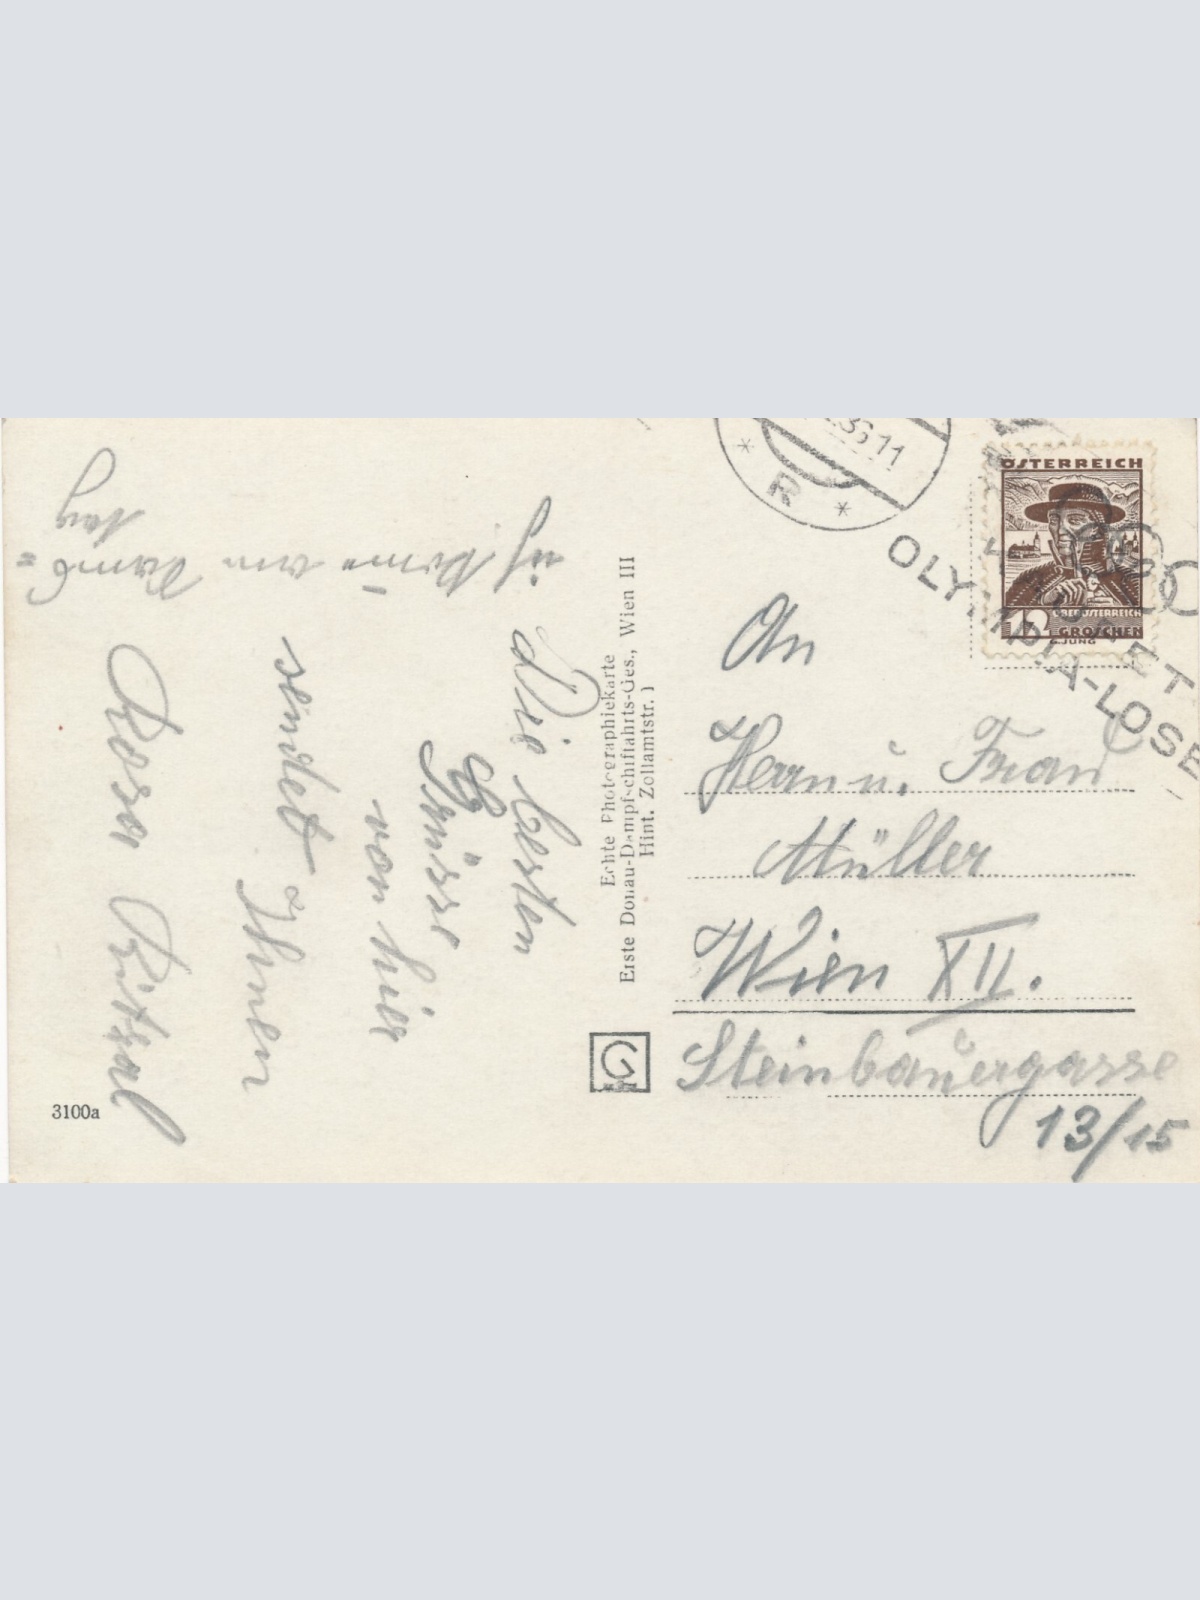 Die besten
Grüsse
von hier
sendet Ihnen
Rosa
ich komme am Sams=
tag
3100a
Echte Photographiekarte
Erste Donau-Dampfschiffahrts-Ges., Wien III
Hint. Zollamtstr. 1
G
R
36 11
OLYMPIA-LOSE
ÖSTERREICH
12
OBERÖSTERREICH
GROSCHEN
JUNG
An
Herrn u. Frau
Müller
Wien XII.
Steinbauergasse
13/15